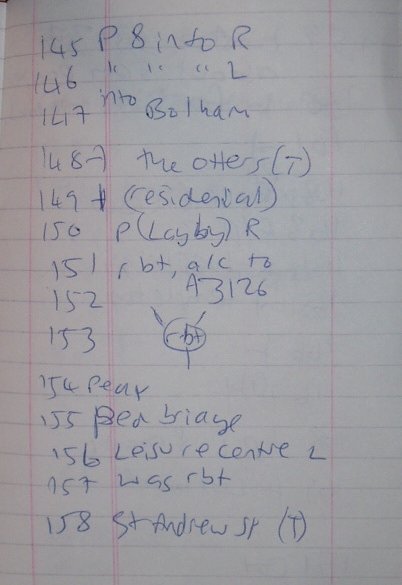 145 P 8 into R
146 " " " L
147 into Bolham
148 → the otters (T)
149 + (residenial)
150 P (Layby) R
151 rbt, alc to
152 A3126
153 rbt
154 Pear
155 Ped bridge
156 Leisure centre L
157 was rbt
158 St Andrew St (T)